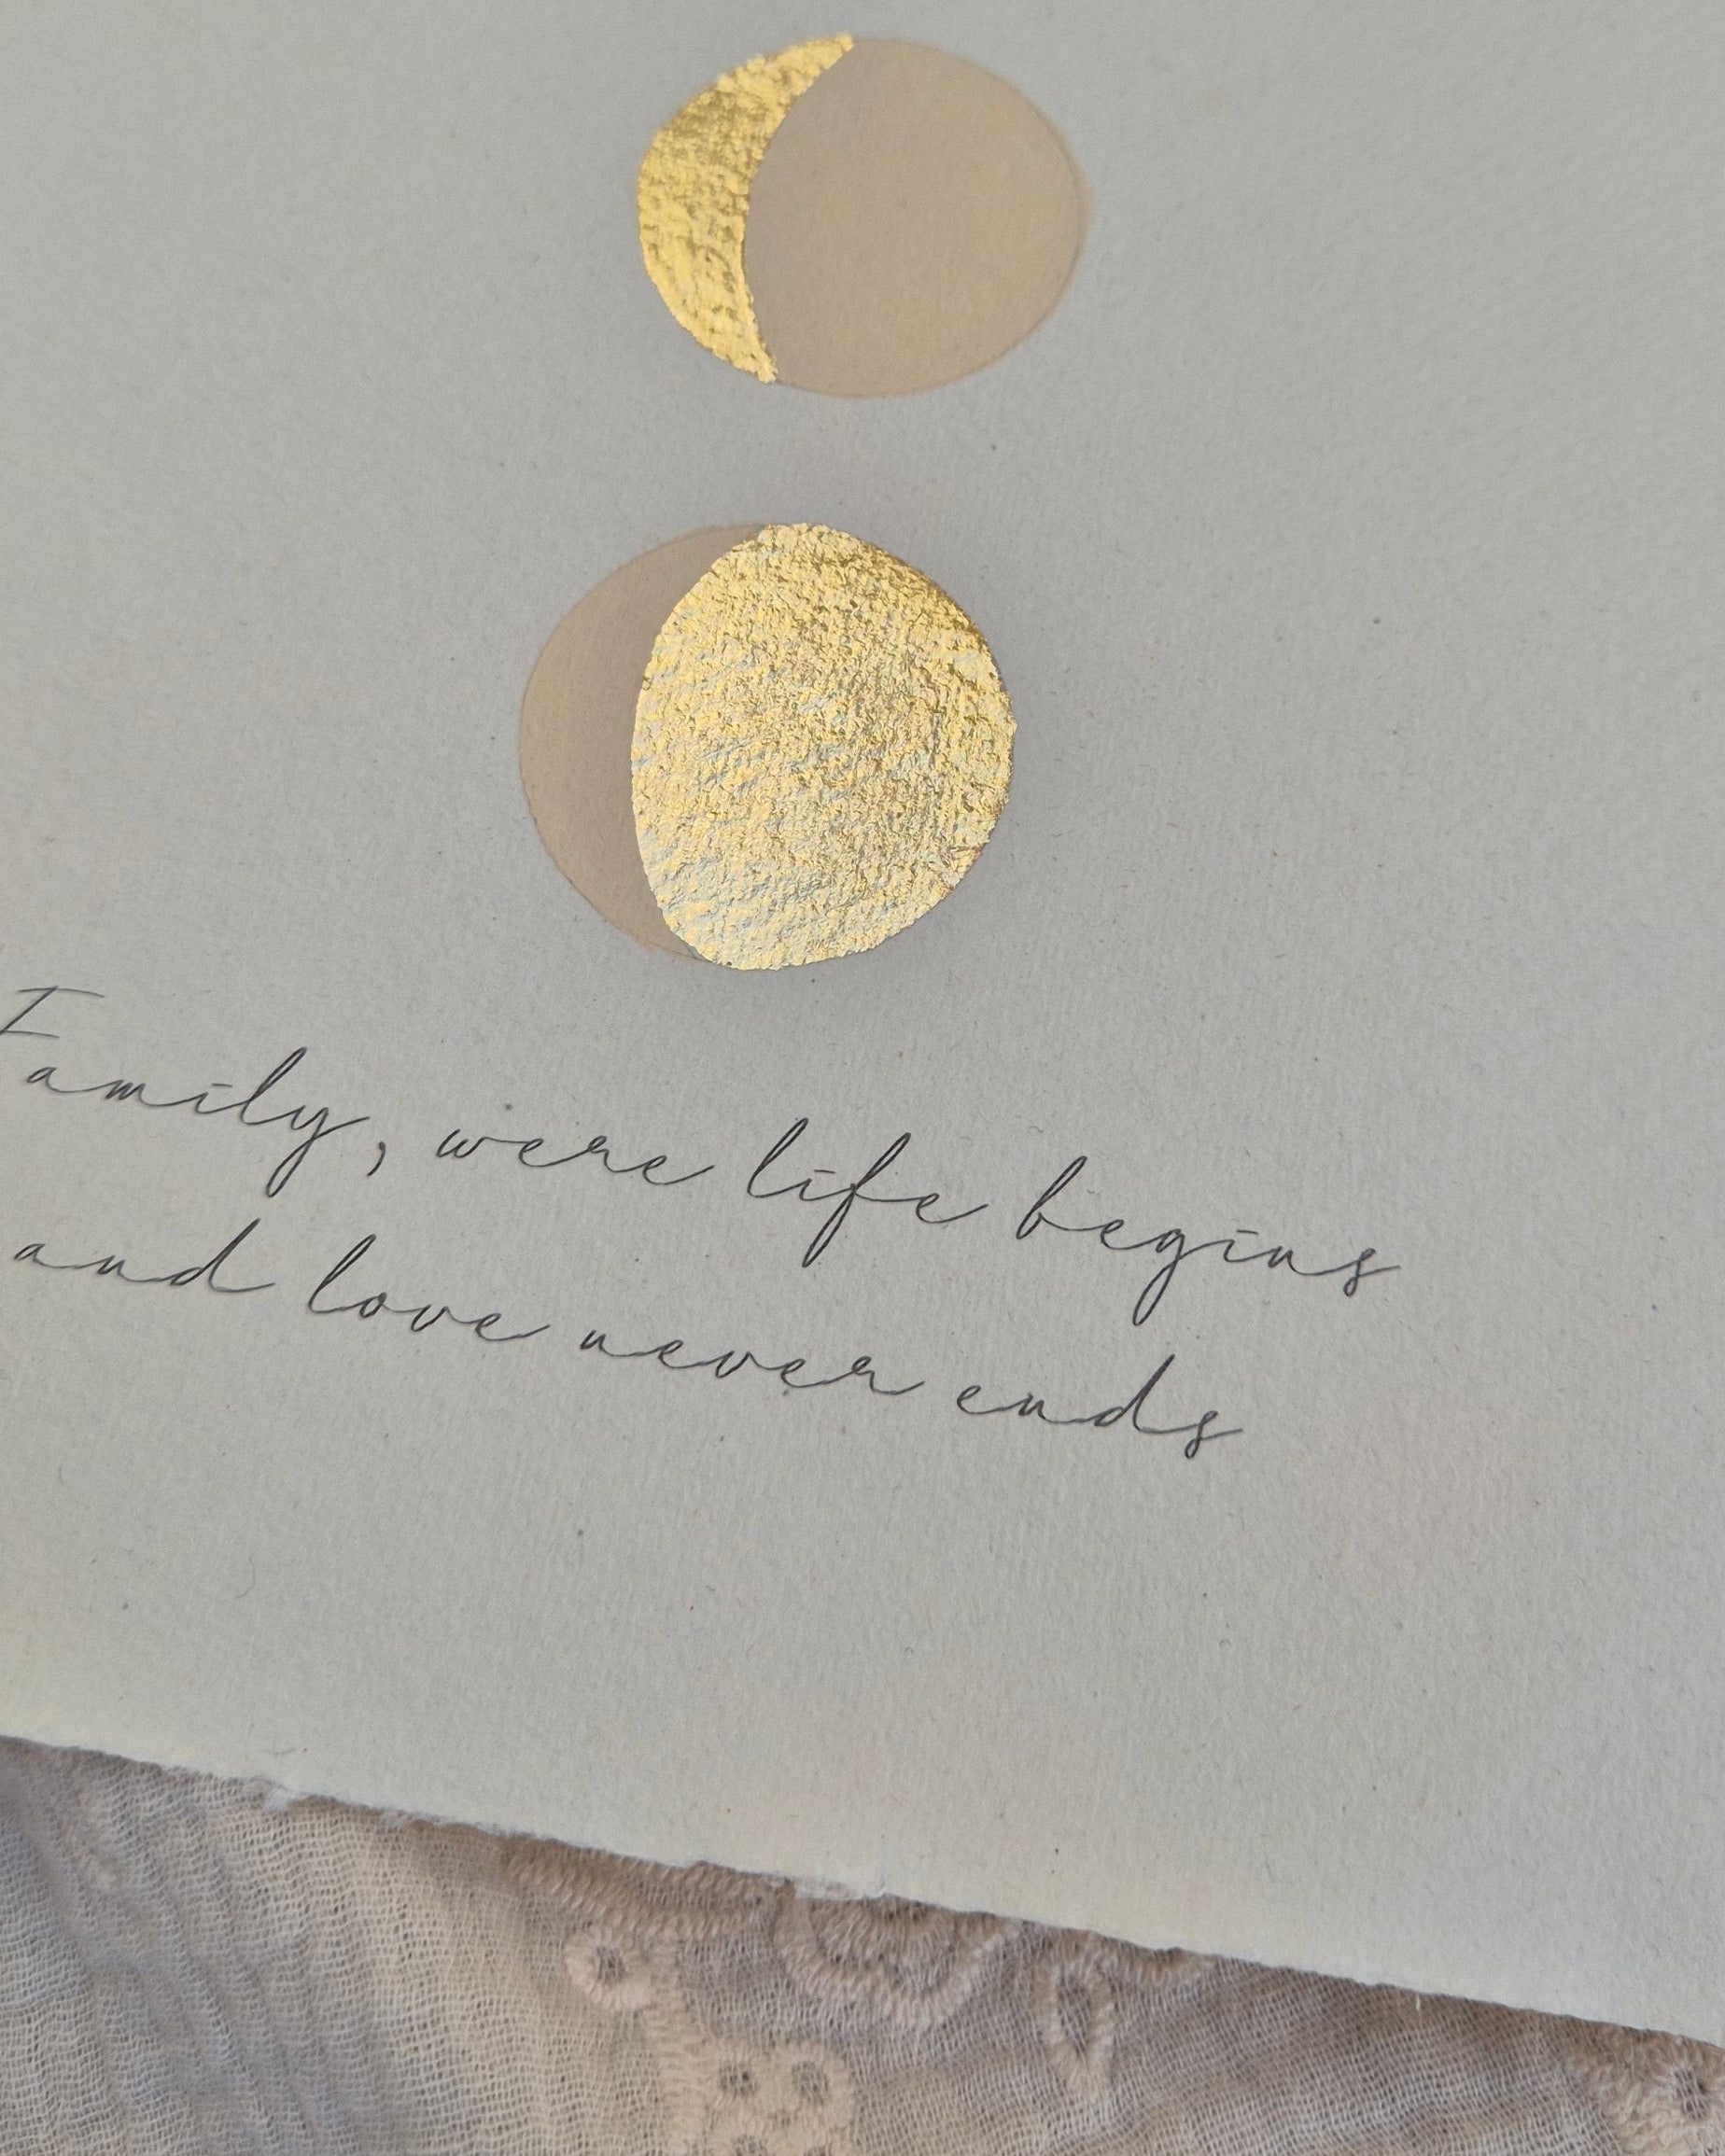 Family, were life begins
and love never ends